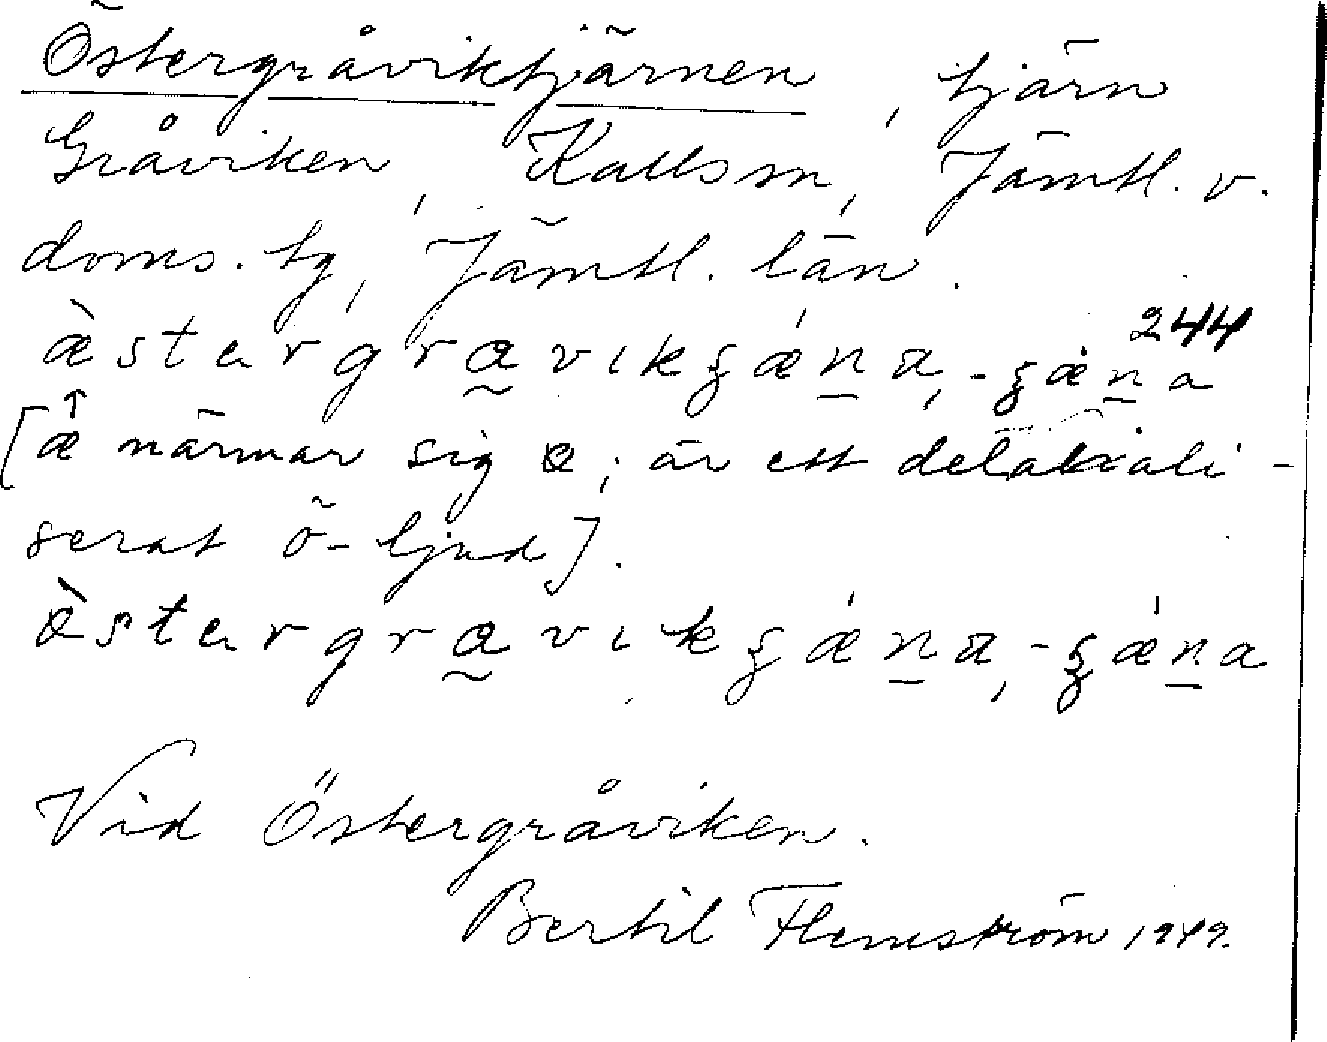 Östergråviktjärnen, tjärn
Gråviken, Kallsm, Jämtl. v.
doms. tg, Jämtl. län.
244
æ̀stergrɑvikʒǽnɑ, -ʒǽna
[æ̂ närmar sig ɵ; är ett delabiali-
serat ö-ljud].
ɵ̀stergrɑvikʒǽnɑ, -ʒǽna
Vid Östergråviken.
Bertil Flemström 1949.